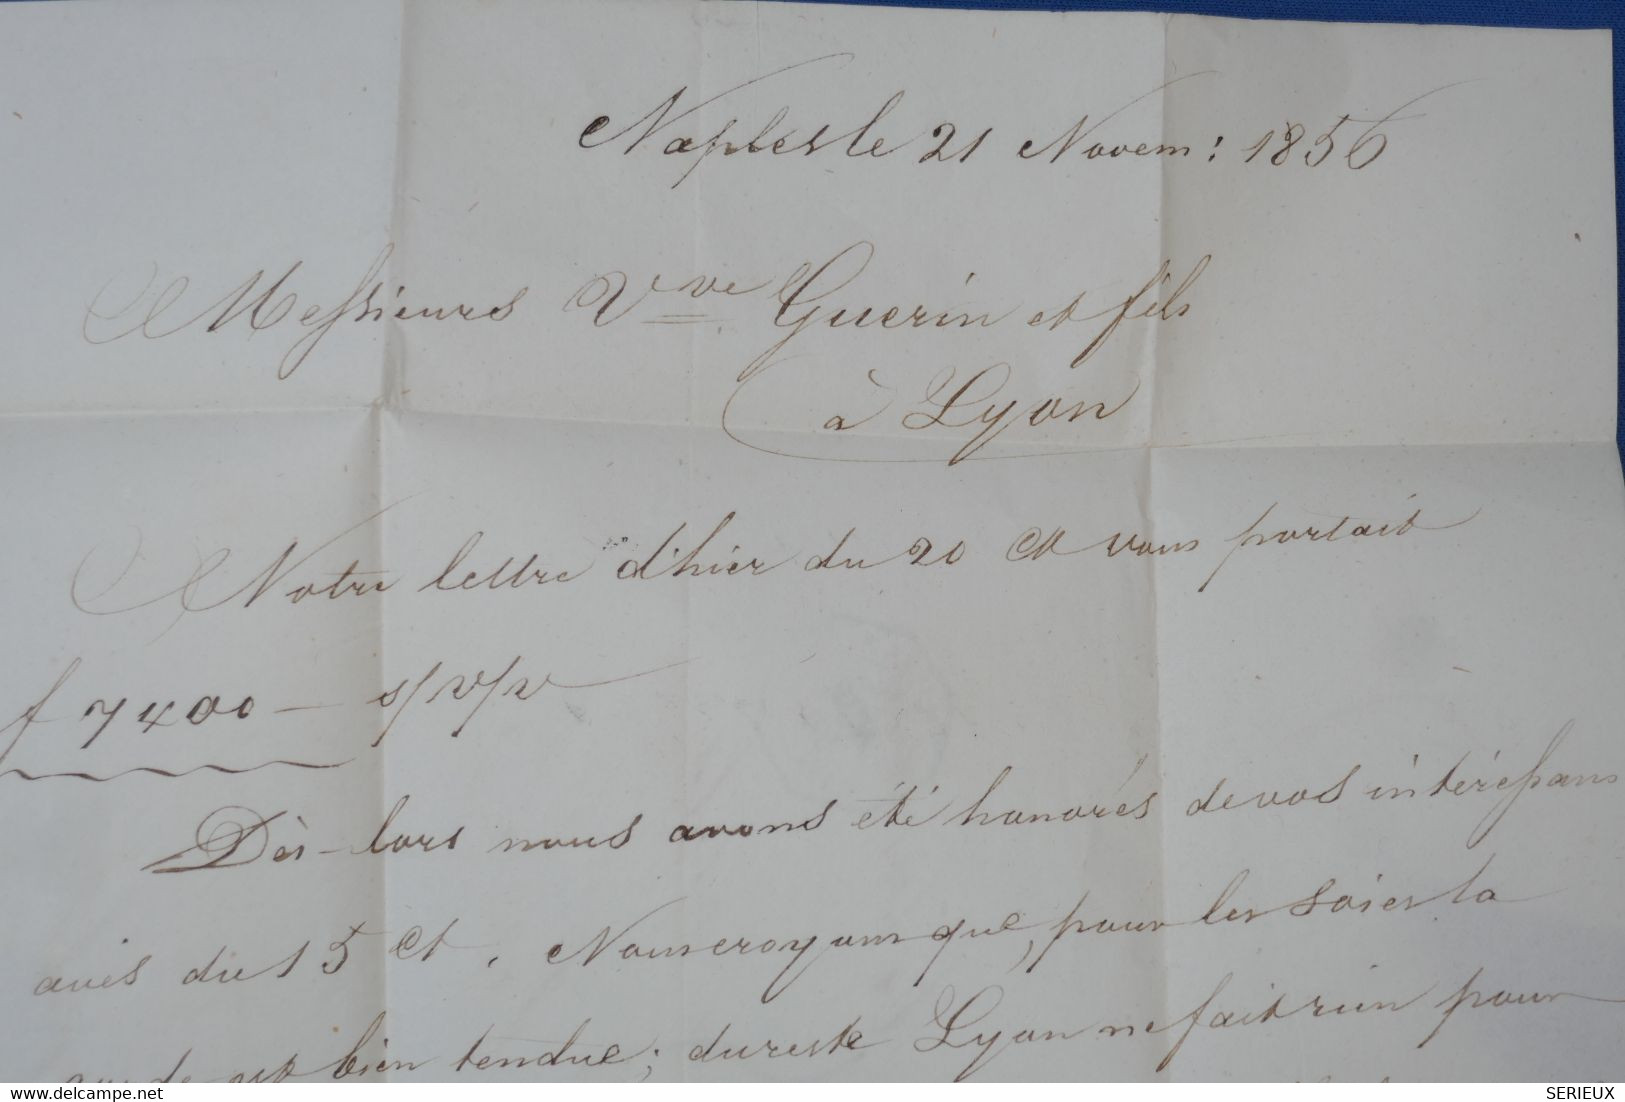 Naples le 21 Novem: 1856
Messieurs Vve Guerin et fils
à Lyon
Notre lettre d'hier du 20 Ct vous portait
f 7400 — s/v/v
Dès-lors nous avons été honorés de vos intéressans
avis du 15 Ct. Nous croyons que, pour les soies la
corde est bien tendue; du reste Lyon ne fait rien pour
SERIEUX
delcampe.net